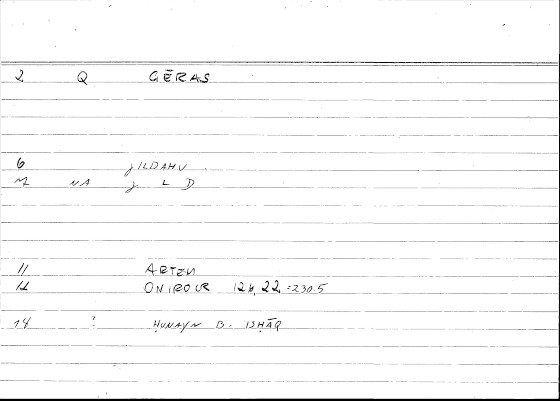 2 Q GĒRAS
6 ɟILDAHU
M NA ɟ L D
11 ARTEM
12 ONIROCR 126, 22 = 230.5
14 ? ḤUNAYN B. ISḤĀQ